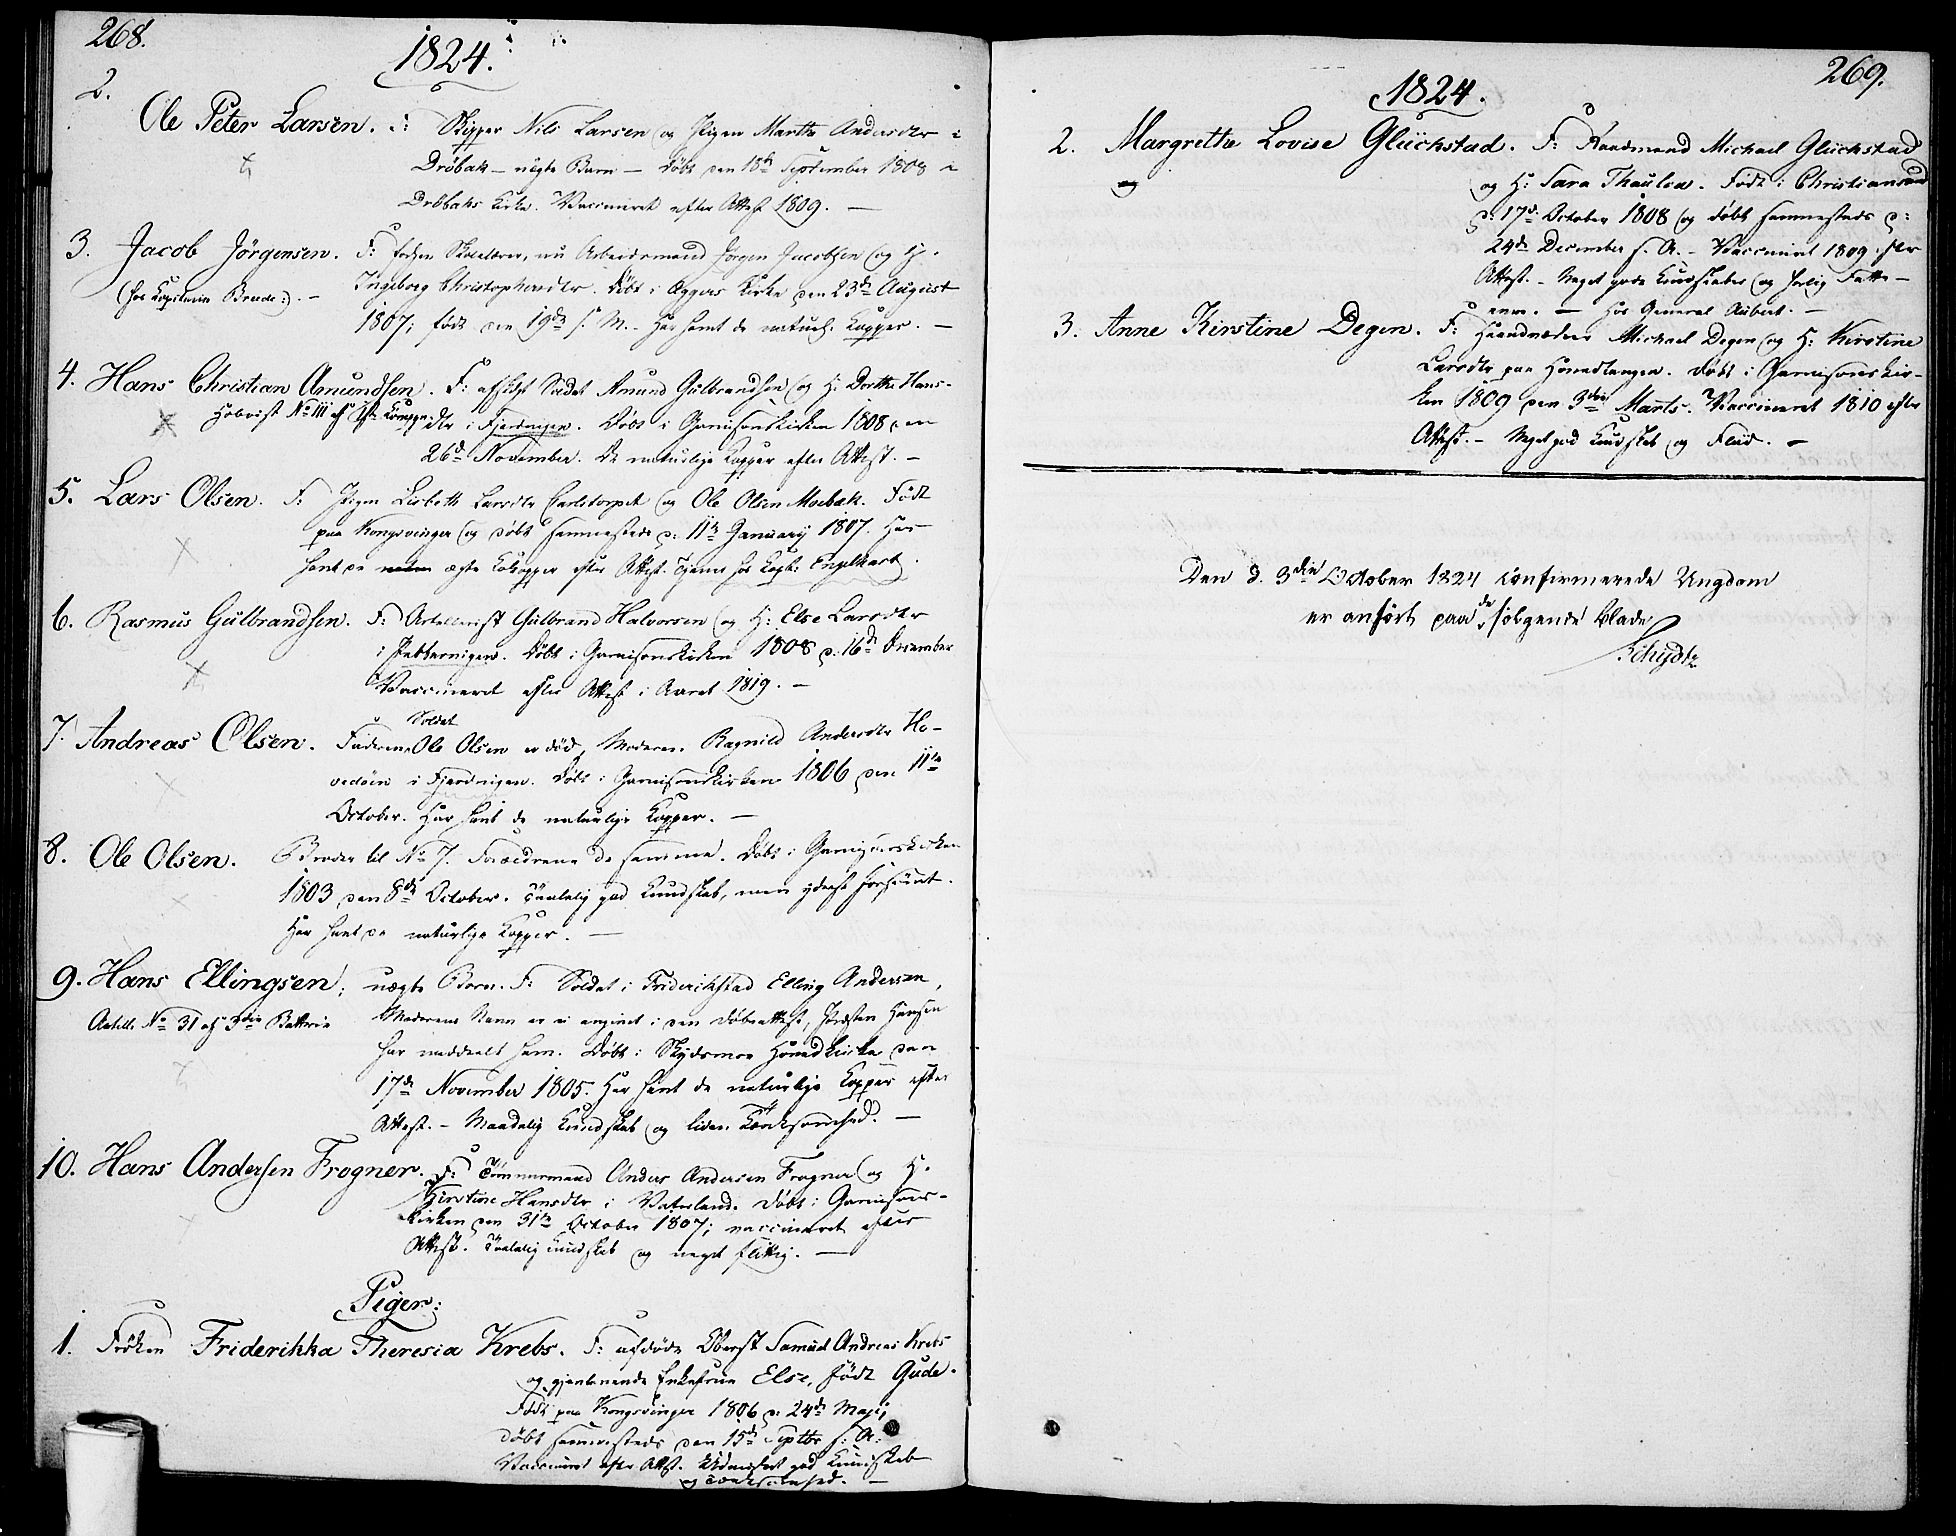 268.
1824.
2.
Ole Peter Larsen. F: Skipper Nils Larsen og Pigen Marthe Andersdtr i
Dröbak – uægte Barn – Döbt den 18de September 1808 i
Dröbaks Kirke. Vaccineret efter Attest 1809. –
3. Jacob Jörgensen. F: forhen Skolelærer, nu Arbeidsmand Jörgen Jacobsen og H:
(hos Kapitain Brude:). – Ingeborg Christophersdtr. Döbt i Aggers Kirke den 23de August
1807; födt den 19de s. M. – Har havt de naturl. Kopper. –
4. Hans Christian Amundsen. F: afskd. Soldat Amund Gulbrandsen og H: Dorthe Hans-
Hoboist No III dtr i Fjerdingen. Döbt i Garnisonskirken 1808 den
26de November. De naturlige Kopper efter Attest. –
5. Lars Olsen. F: Pigen Lisbeth Larsdtr Carlstorpet og Ole Olsen Moebæk. Födt
paa Kongsvinger og döbt sammesteds d: 11te January 1807. Har
havt de ægte Kokopper efter Attest. Tjener hos Capt: Engelhart.
6. Rasmus Gulbrandsen. F: Artellerist Gulbrand Halvorsen og H: Else Larsdtr
i Pebbervigen. Döbt i Garnisonskirken 1808 d: 16de December
Vaccineret efter Attest i Aaret 1819. –
7. Andreas Olsen. Faderen Soldat Ole Olsen er död, Moderen Ragnild Andersdtr Ho-
vedöen i Fjerdingen. Döbt i Garnisonskirken 1806 den 11te
October. Har havt de naturlige Kopper. –
8. Ole Olsen. Broder til No 7. Forældrene de samme. Döbt i Garnisonskirken
1803 den 8de October. Taalelig god Kundskab, men yderst forsömt.
Har havt de naturlige Kopper. –
9. Hans Ellingsen; uægte Barn. F: Soldat i Friderichstad Elling Andersen,
Artill. No 31 af 3die Batterie Moderens Navn er ei angivet i den Döbeattest, Præsten Hansen
har meddeelt ham. Döbt i Skydsmoe Hovedkirke den
17de November 1805. Har havt de naturlige Kopper efter
Attest. – Maadelig Kundskab og liden Tænksomhed. –
10. Hans Andersen Frogner. F: Tömmermand Anders Andersen Frogner og H:
Kirstine Hansdtr i Vaterland. Döbt i Garnisons-
kirken den 31te October 1807; vaccineret efter
Attest. Taalelig Kundskab og meget flittig. –
Piger:
1. Fröken Friderikka Theresia Krebs. F: afdöde Oberst Samuel Andreas Krebs
og gjenlevende Enkefrue Else, födt Gude.
Födt paa Kongsvinger 1806 d: 24de Maji;
döbt sammesteds den 15de Septbr s: A:
Vaccineret efter Attst. Udmærket god Kundskab
og Tænksomhed. –
269.
1824.
2. Margrethe Lovise Glückstad. F: Kaadmand Michael Glückstad
og H: Sara Thaulow. Födt i Christiansund
d: 17de October 1808 og döbt sammesteds d:
24de December s. A. – Vaccineret 1809 efter
Attest. – Meget gode Kundskaber og herlig Fatte-
evne. – Hos General Aubert. –
3. Anne Kirstine Degen. F: Haandværker Michael Degen og H: Kirstine
Larsdtr paa Hovedtangen. Döbt i Garnisonskir-
ken 1809 den 3die Marts. Vaccineret 1810 efter
Attest. – Meget god Kundskab og Fliid. –
Den d. 3die October 1824 confirmerede Ungdom
er anfört paa de fölgende Blade
Schydtz